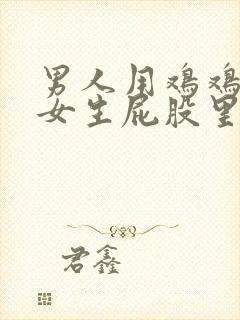 男人用鸡鸡
女生屁股里
君鑫